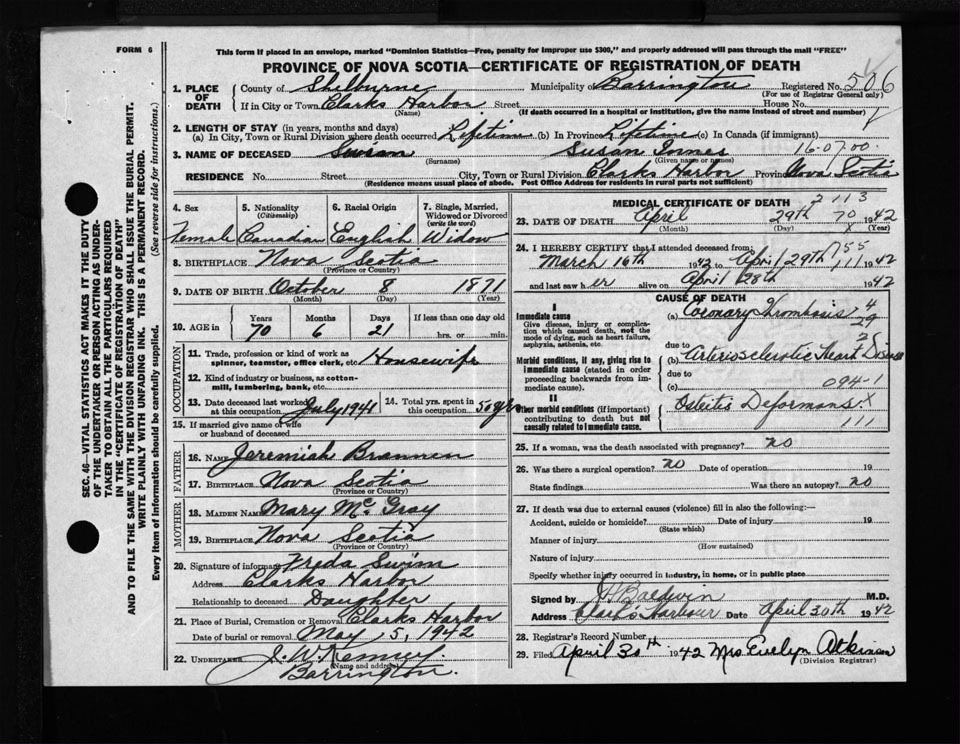 FORM 6
This form if placed in an envelope, marked "Dominion Statistics—Free, penalty for improper use $300," and properly addressed will pass through the mail "FREE"
PROVINCE OF NOVA SCOTIA—CERTIFICATE OF REGISTRATION OF DEATH
SEC. 46—VITAL STATISTICS ACT MAKES IT THE DUTY
OF THE UNDERTAKER OR PERSON ACTING AS UNDER-
TAKER TO OBTAIN ALL THE PARTICULARS REQUIRED
IN THE "CERTIFICATE OF REGISTRATION OF DEATH"
AND TO FILE THE SAME WITH THE DIVISION REGISTRAR WHO SHALL ISSUE THE BURIAL PERMIT.
WRITE PLAINLY WITH UNFADING INK. THIS IS A PERMANENT RECORD.
Every item of information should be carefully supplied. (See reverse side for instructions.)
1. PLACE OF DEATH
County of Shelburne Municipality of Barrington Registered No. 506
(For use of Registrar General only)
If in City or Town Clarks Harbor Street House No.
(Name) (If death occurred in a hospital or institution, give the name instead of street and number)
2. LENGTH OF STAY (in years, months and days)
(a) In City, Town or Rural Division where death occurred Lifetime (b) In Province Lifetime (c) In Canada (if immigrant)
3. NAME OF DECEASED Susan 16-07.00.
(Surname) (Given name or names)
RESIDENCE No. Street City, Town or Rural Division Clarks Harbor Province Nova Scotia
(Residence means usual place of abode. Post Office Address for residents in rural parts not sufficient)
4. Sex 5. Nationality (Citizenship) 6. Racial Origin 7. Single, Married, Widowed or Divorced (write the word)
Female Canadian English Widow
8. BIRTHPLACE Nova Scotia
(Province or Country)
9. DATE OF BIRTH October 8 1871
(Month) (Day) (Year)
10. AGE in Years Months Days If less than one day
70 6 21 hrs. or min.
OCCUPATION
11. Trade, profession or kind of work as spinner, teamster, office clerk, etc. Housewife
12. Kind of industry or business, as cotton-mill, lumbering, bank, etc.
13. Date deceased last worked at this occupation July 1941 14. Total yrs. spent in this occupation 50 yrs
15. If married give name of wife or husband of deceased
FATHER
16. NAME Jeremiah Brannen
17. BIRTHPLACE Nova Scotia
(Province or Country)
MOTHER
18. MAIDEN NAME Mary McGray
19. BIRTHPLACE Nova Scotia
(Province or Country)
20. Signature of informant Freda Swim
Address Clarks Harbor
Relationship to deceased Daughter
21. Place of Burial, Cremation or Removal Clarks Harbor
Date of burial or removal May 5, 1942
22. UNDERTAKER J. W. Kenney.
(Name and address)
Barrington.
MEDICAL CERTIFICATE OF DEATH 2 113
23. DATE OF DEATH April 29th 70 1942
(Month) (Day) X (Year)
24. I HEREBY CERTIFY that I attended deceased from: 755
March 16th 1942 to April 29th 111 1942
and last saw her alive on April 28th 1942
CAUSE OF DEATH
I
Immediate cause
Give disease, injury or complication which caused death, not the mode of dying, such as heart failure, asphyxia, asthenia, etc.
(a) Coronary Thrombosis
Morbid conditions, if any, giving rise to immediate cause (stated in order proceeding backwards from immediate cause).
due to
(b) Arteriosclerotic Heart Disease
due to
(c) 094-1
II
Other morbid conditions (if important) contributing to death but not causally related to immediate cause.
Osteitis Deformans X
111
25. If a woman, was the death associated with pregnancy? no
26. Was there a surgical operation? no Date of operation 19
State findings Was there an autopsy? no
27. If death was due to external causes (violence) fill in also the following:—
Accident, suicide or homicide? Date of injury 19
(State which)
Manner of injury
(How sustained)
Nature of injury
Specify whether injury occurred in industry, in home, or in public place
Signed by Bredwin M.D.
Address Clark's Harbour Date April 30th 1942
28. Registrar's Record Number
29. Filed April 30th 1942 Mrs Evelyn Atkinson
(Division Registrar)